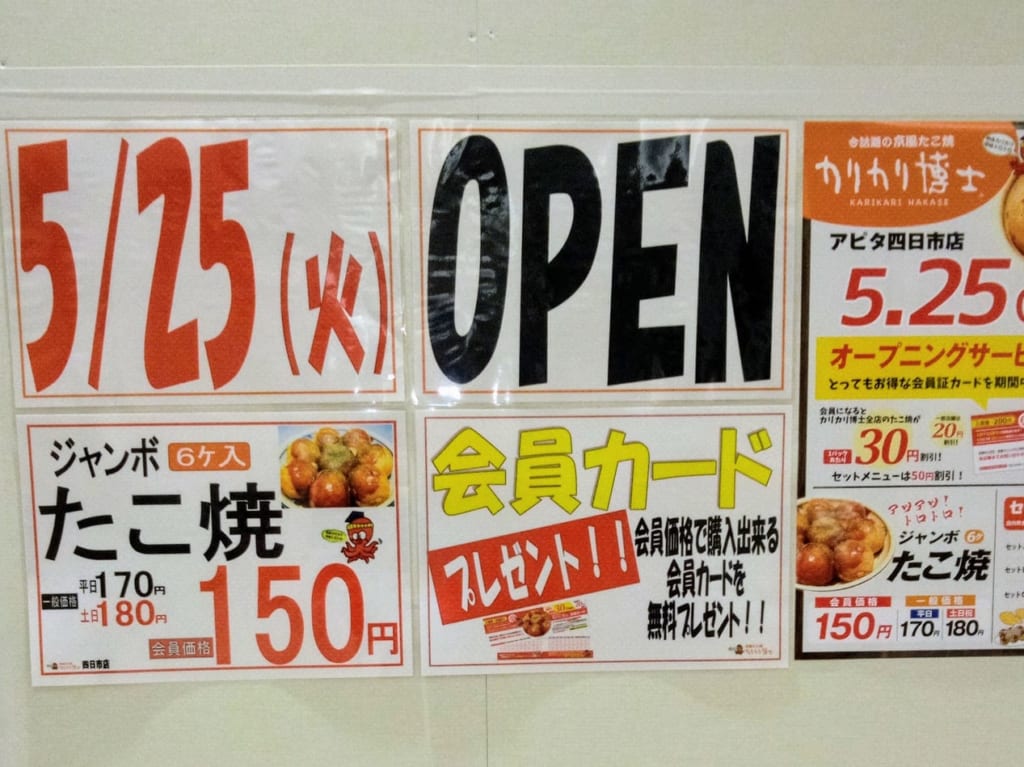 5/25(火)
OPEN
ジャンボ 6ケ入
たこ焼
一般価格 平日170円
土日180円
会員価格 150円
四日市店
会員カード
プレゼント!!
会員価格で購入出来る
会員カードを
無料プレゼント!!
今話題の京風たこ焼
カリカリ博士
KARIKARI HAKASE
アピタ四日市店
5.25
オープニングサービ
とってもお得な会員証カードを期間中
会員になると
カリカリ博士全店のたこ焼が
1パックあたり 30円割引!
20円割引!
セットメニューは50円割引!
アツアツ!
トロトロ!
ジャンボ 6ケ
たこ焼
会員価格 一般価格
平日 土日祝
150円 170円 180円